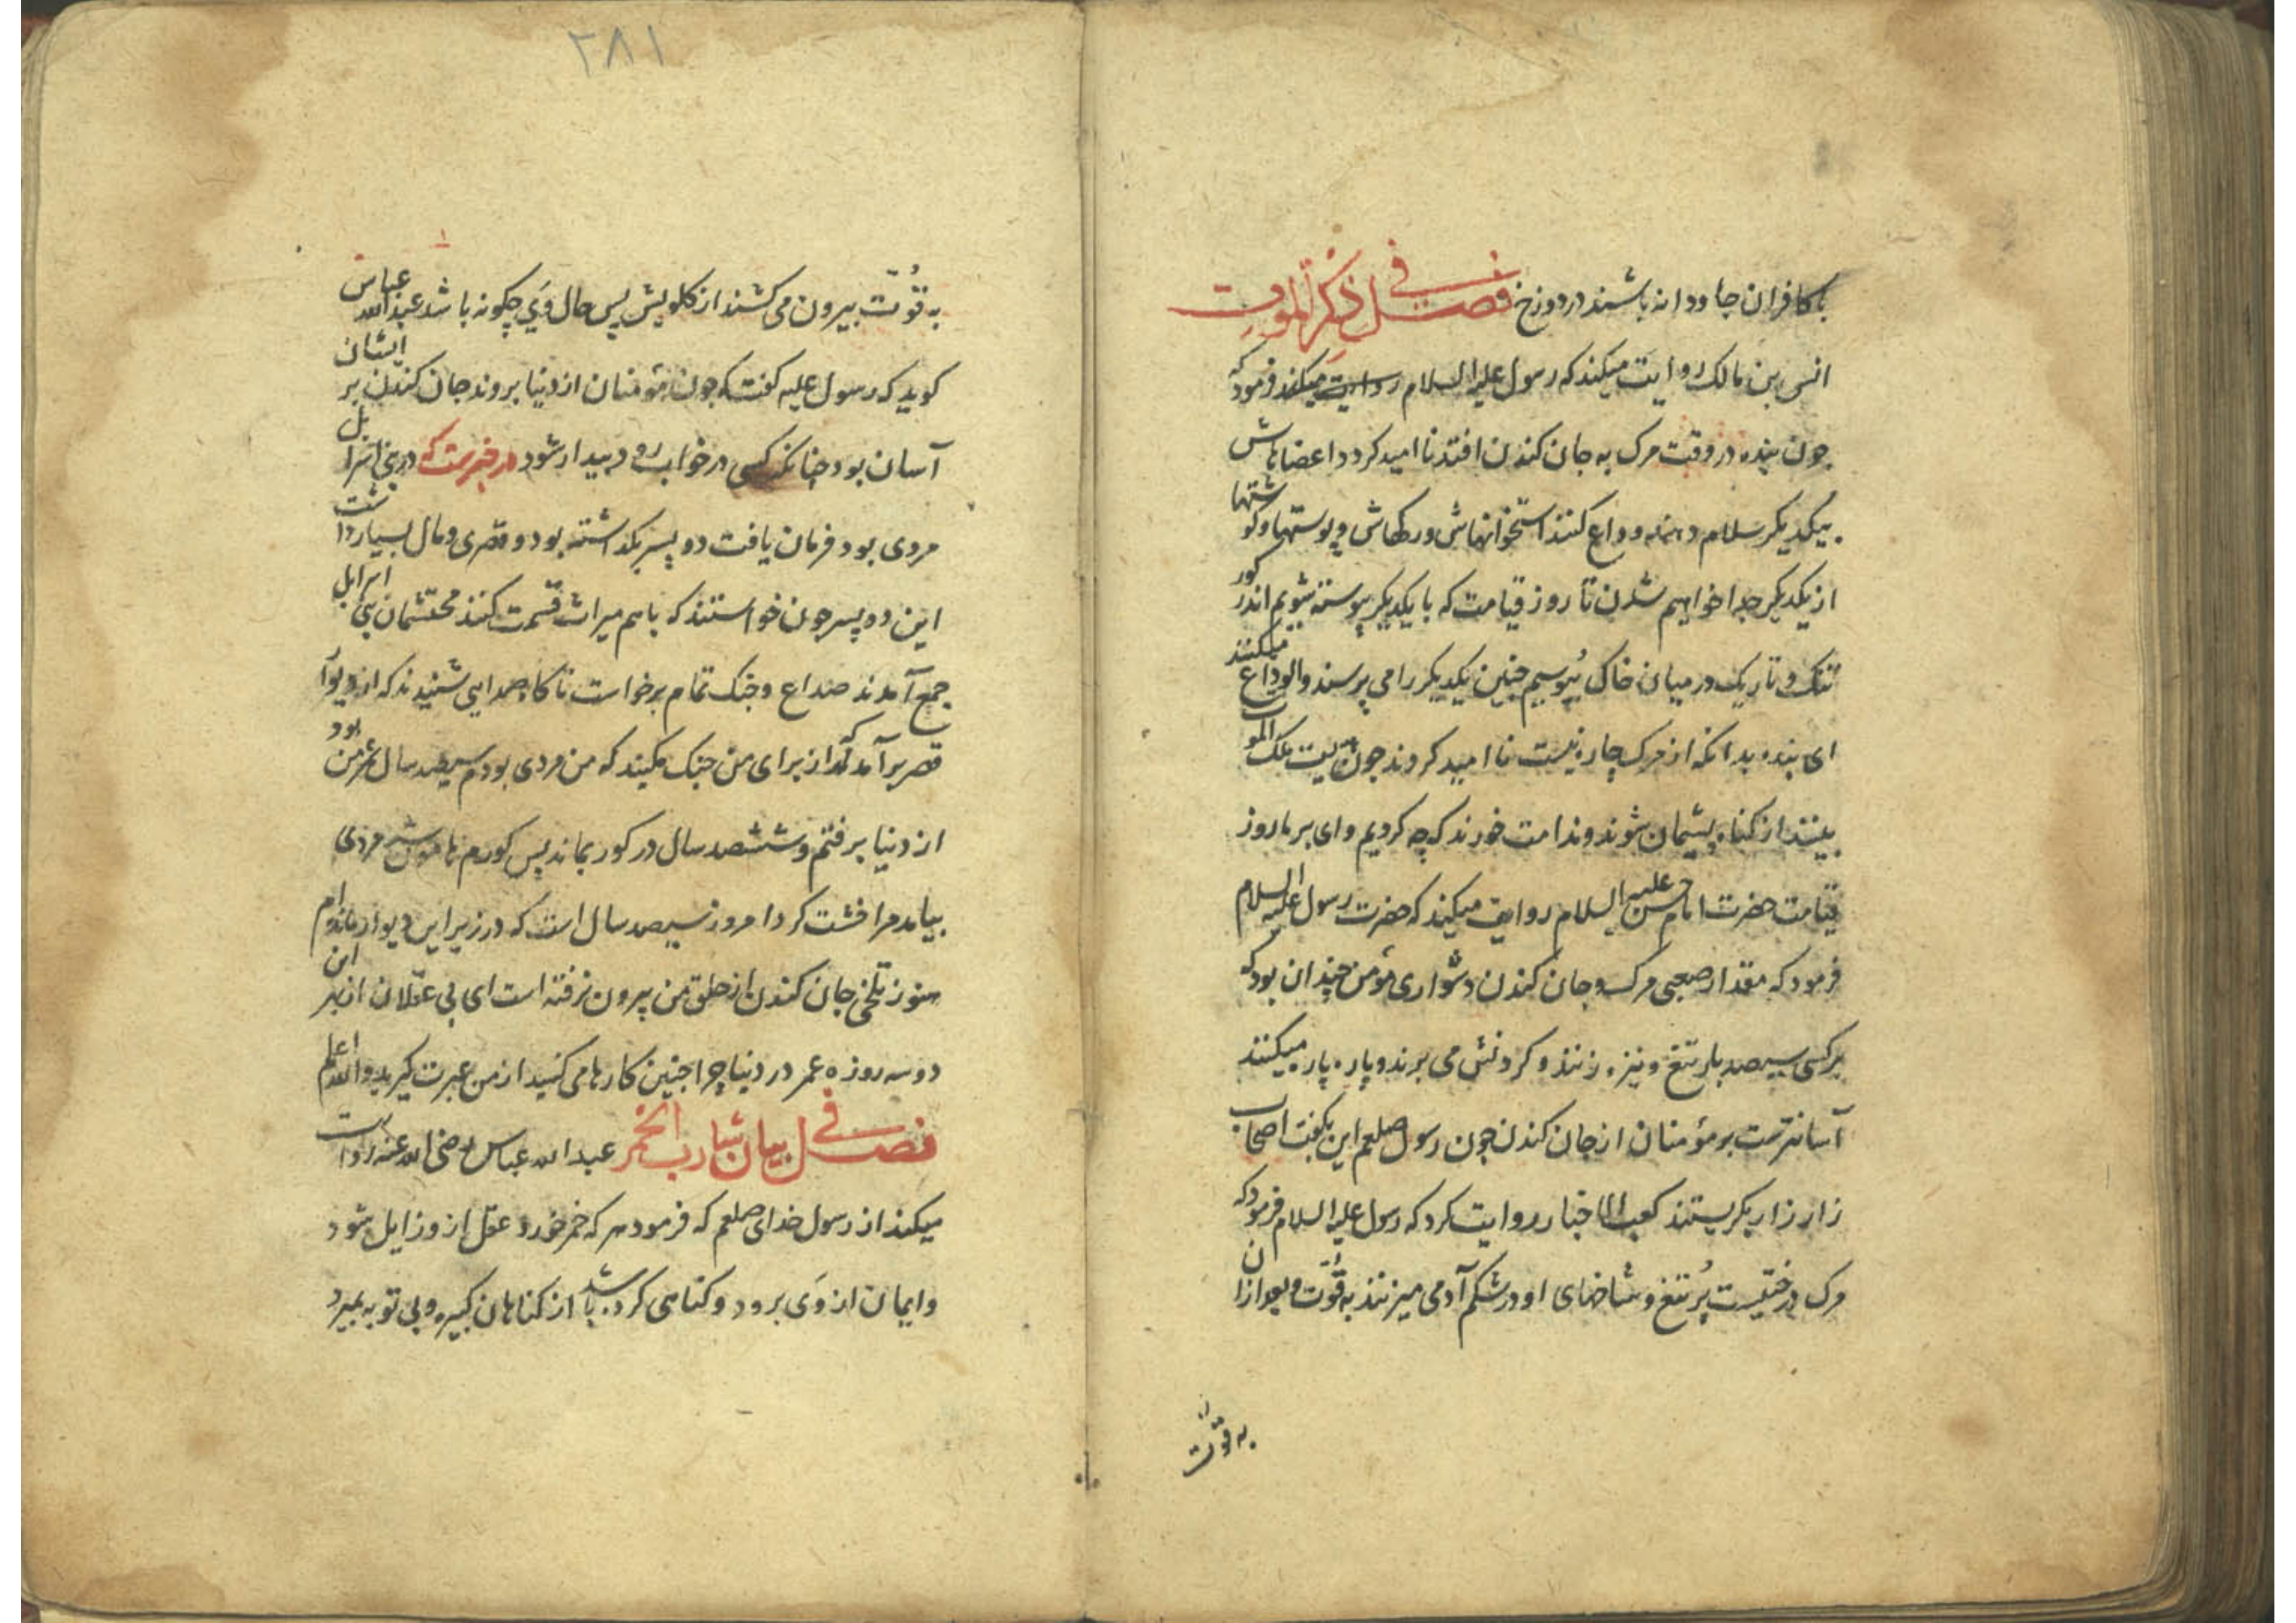 با کافران جاودانه باشند در دوزخ فصل فی ذکر الموت
انس بن مالک روایت میکند که رسول علیه السلام روایت میکند فرمود که
چون بنده در وقت مرک به جان کندن افتد نا امید کردد اعضاهاش
بیکدیکر سلام دهند و وداع کنند استخوانهاش و رکهاش و پوستها و کوشتها
از یکدیکر جدا خواهیم شدن تا روز قیامت که با یکدیکر پیوسته شویم اندر کور
تنک و تاریک در میان خاک بپوسیم چنین یکدیکر را می پرسند و الوداع میکنند
ای بنده بدانکه از مرک چاره نیست نا امید کردند چون هیبت ملک الموت
بینند از کناه پشیمان شوند و ندامت خورند که چه کردیم وای بر ما روز
قیامت حضرت امام حسن علیه السلام روایت میکند که حضرت رسول علیه السلام
فرمود که مقدار صعبی مرک و جان کندن و شواری مؤمن چندان بود که
بر کسی سیصد بار تیغ و نیزه زنند و کردنش می برند و پاره پاره میکنند
آسانترست بر مؤمنان از جان کندن چون رسول صلعم این بکفت اصحاب
زار زار بکریستند کعب الاخبار روایت کرد که رسول علیه السلام فرمود که
مرک درختیست پر تیغ و شاخهای او در شکم آدمی میزنند به قوّت و بعد از آن
به قوّت
۲۸۱
به قوّت بیرون می کشند از کلویش پس حال وی چکونه باشد عبد الله عباس
کوید که رسول علیه کفت که چون مؤمنان از دنیا بروند جان کندن بر ایشان
آسان بود چنانکه کسی در خواب رود بیدار شود در خبرست که در بنی اسرائیل
مردی بود فرمان یافت دو پسر بکذاشته بود و قصری و مال بسیار داشت
این دو پسر چون خواستند که باهم میراث قسمت کنند محتشمان بنی اسرائیل
جمع آمدند صداع و جنک تمام برخواست ناکاه صدایی شنیدند که از دیوار
قصر برآمد که از برای من جنک مکنید که من مردی بودم سیصد سال عمر من بود
از دنیا برفتم و ششصد سال در کور بماند پس کورم هامون شد مردی
بیامد مرا خشت کرد امروز سیصد سال است که در زیر این دیوار مانده ام
هنوز تلخی جان کندن از حلق من بیرون نرفته است ای بی عقلان از بهر این
دو سه روزه عمر در دنیا چرا چنین کارها می کنید از من عبرت کیرید والله اعلم
فصل فی بیان شارب الخمر عبد الله عباس رضی الله عنه روایت
میکند از رسول خدای صلعم که فرمود هر که خمر خورد عقل از و زایل شود
و ایمان از وی برود و کناهی کرده باشد از کناهان کبیره و بی توبه بمیرد